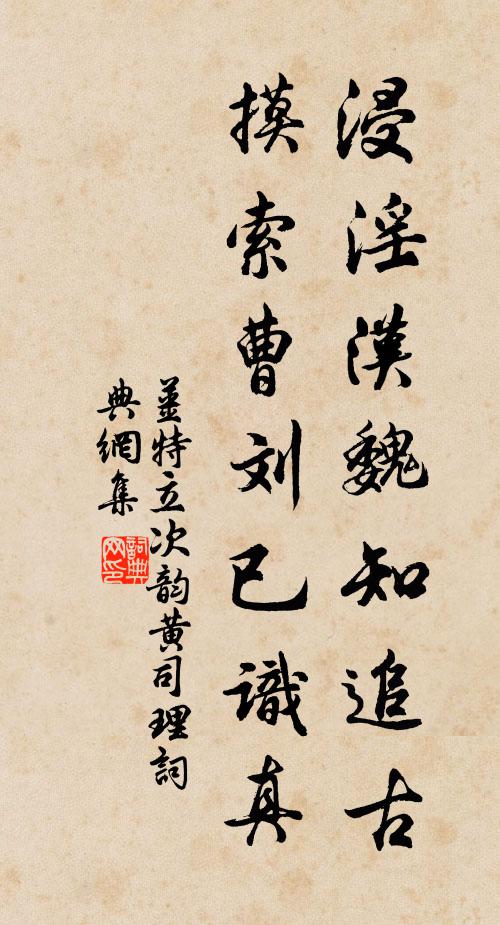 浸淫漢魏知追古
摸索曹刘已識真
姜特立次韵黄司理詞
典網集
詞典
网印